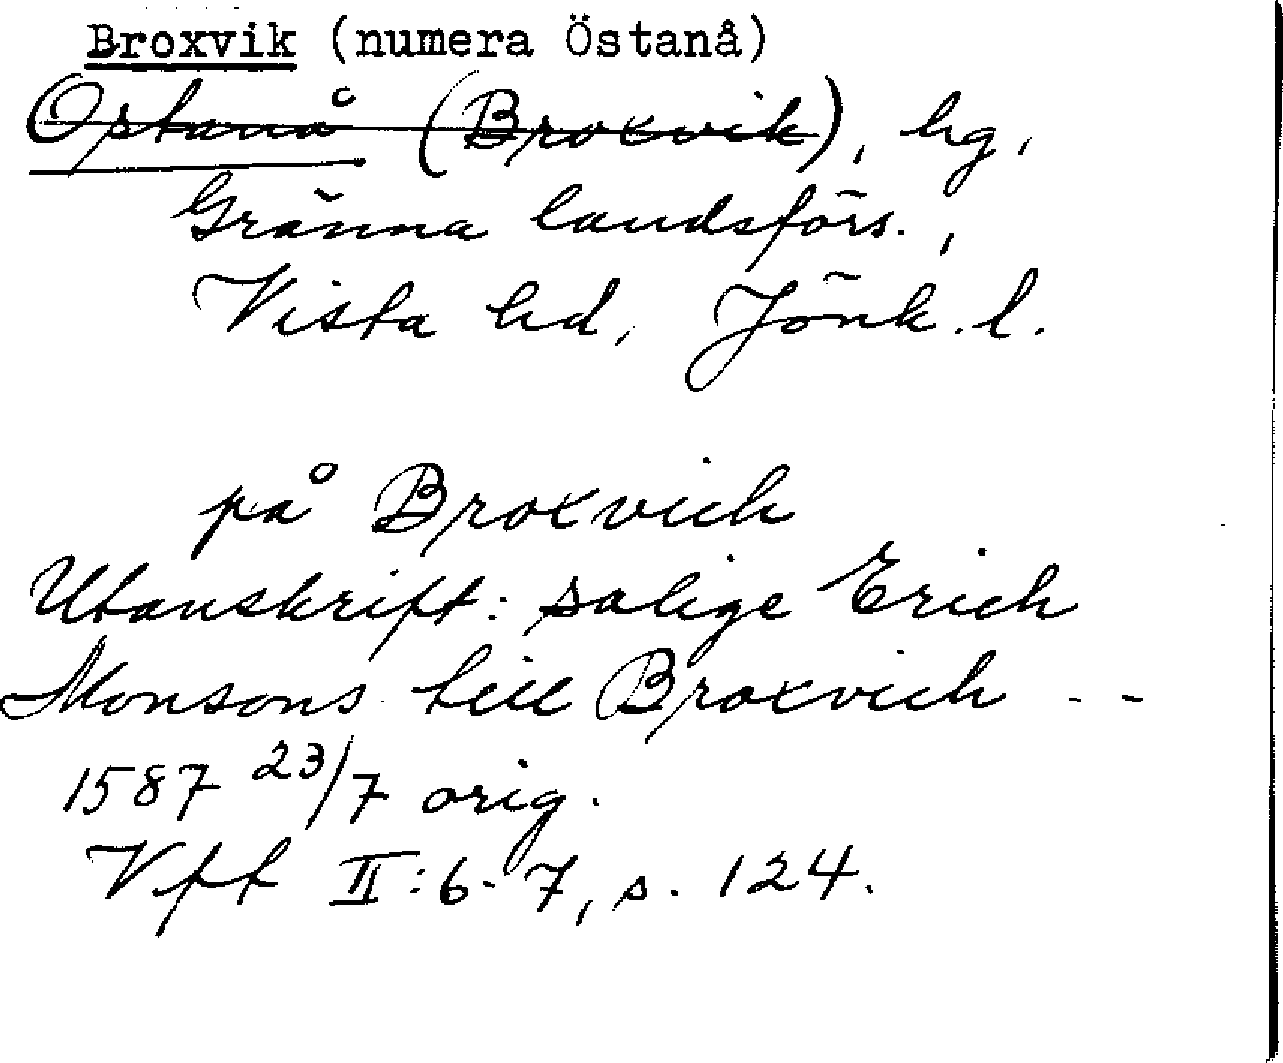 Broxvik (numera Östanå)
Östanå (Broxvik), hg,
Gränna landsförs.,
Vista hd, Jönk. l.
på Broxvich
Utanskrift: salige Erich
Monsons till Broxvich - -
1587 23/7 orig.
Vff II:6-7, s. 124.